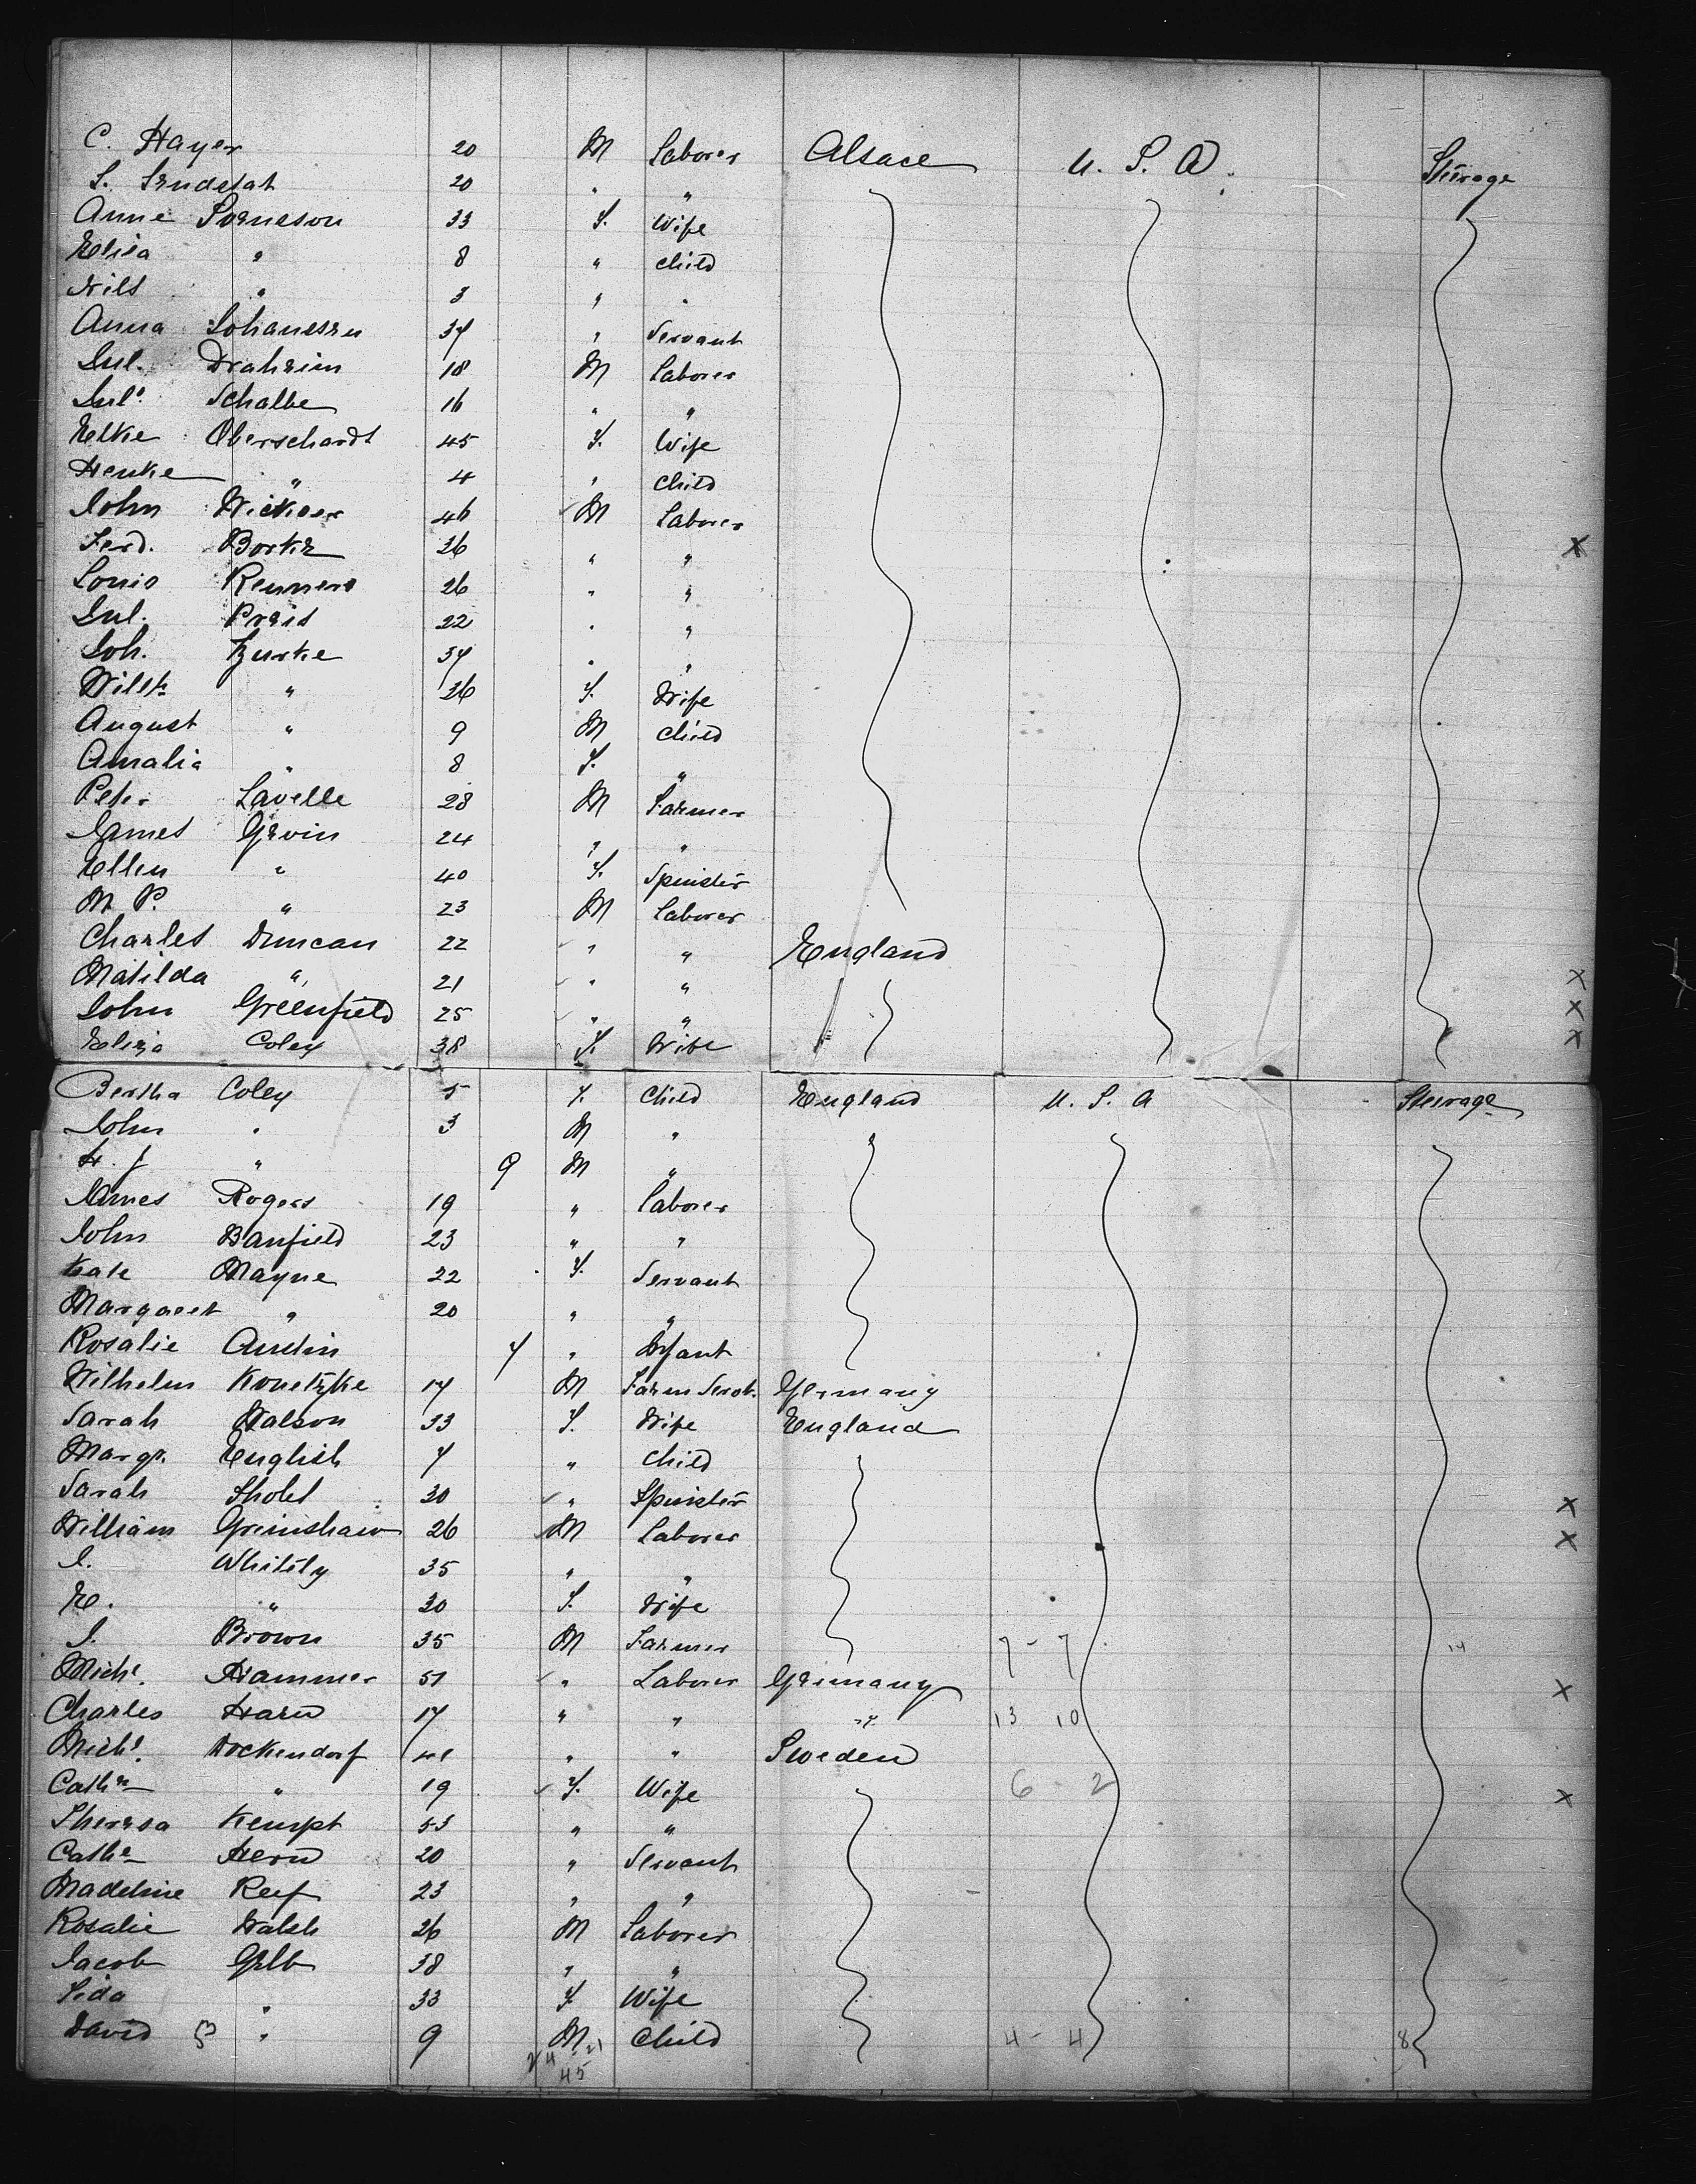 C. Hayer 20 M Laborer Alsace U. S. A. Steerage
S. 20 " "
Anne Sorneson 33 F. Wife
Elisa " 8 " Child
Nils " 3 " "
Anna Johanssen 34 " Servant
Jul. Draheim 18 M Laborer
Jul. Schalbe 16 " "
Elke Oberschardt 45 F. Wife
Henke " 4 " Child
John 46 M Laborer
Ferd. Borke 26 " " X
Louis Renners 26 " "
Jul. Preis 22 " "
Joh. Zurke 34 " "
Wilh " 26 F. Wife
August " 9 M Child
Amalia " 8 F. "
Peter Lavelle 28 M Farmer
James Gevin 24 " "
Ellen " 40 F. Spinster
M. P. " 23 M Laborer
Charles Duncan 22 " " England
Matilda " 21 " " X
John Greenfield 25 " " X
Eliza Coley 38 F. Wife X
Bertha Coley 5 F. Child England U. S. A Steerage
John " 3 M "
H. J " 9 M "
James Rogers 19 " Laborer
John Banfield 23 " "
Kate Mayne 22 F. Servant
Margaret " 20 " "
Rosalie Austin 7 " Infant
Wilhelm Konetzke 17 M Farm Servt. Germany
Sarah Watson 33 F. Wife England
Margt. English 7 " Child
Sarah Sholt 30 " Spinster X
William Grimshaw 26 M Laborer X
J. Whitely 35 " "
E. " 30 F. Wife
J. Brown 35 M Farmer 7 - 7 14
Michl. Hammer 51 " Laborer Germany X
Charles Hard 17 " " " 13 10
Michl. Dockendorf 41 " " Sweden
Cathn " 19 F. Wife 6 - 2 X
Theresa Kempt 53 " "
Cathe Hern 20 " Servant
Madeline Reef 23 " "
Rosalie Walsh 26 M Laborer
Jacob Gelb 38 " "
Lida " 33 F Wife
David " 9 M Child 4 - 4 8
24 21
45